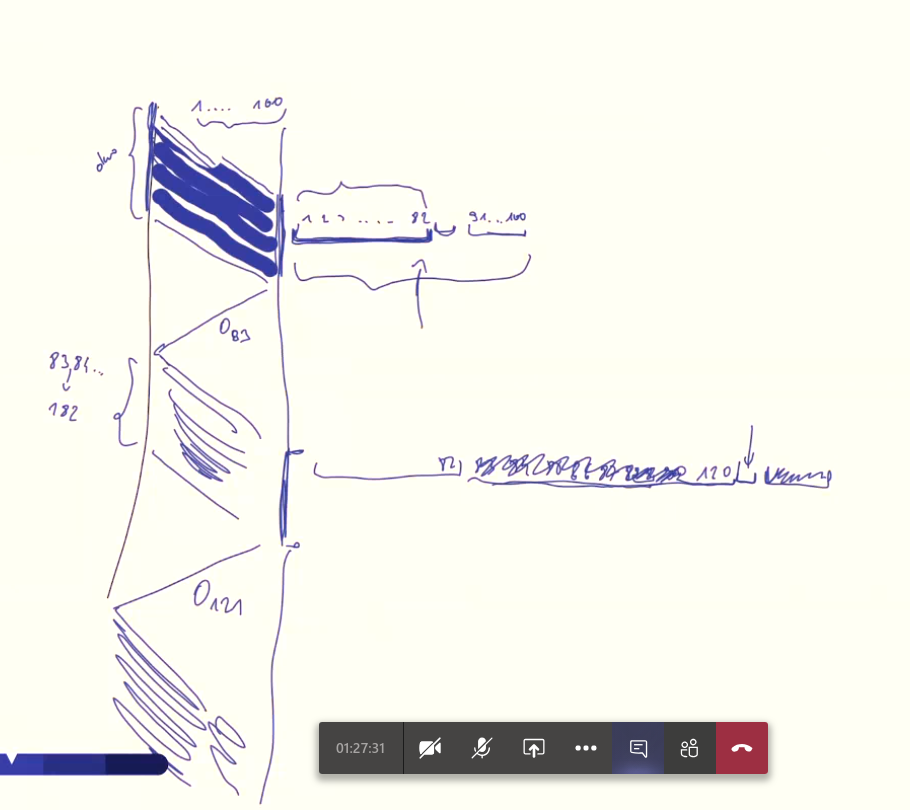 1.... 100
1 2 3 .... 82 91...100
O83
83,84...
182
120
O121
01:27:31